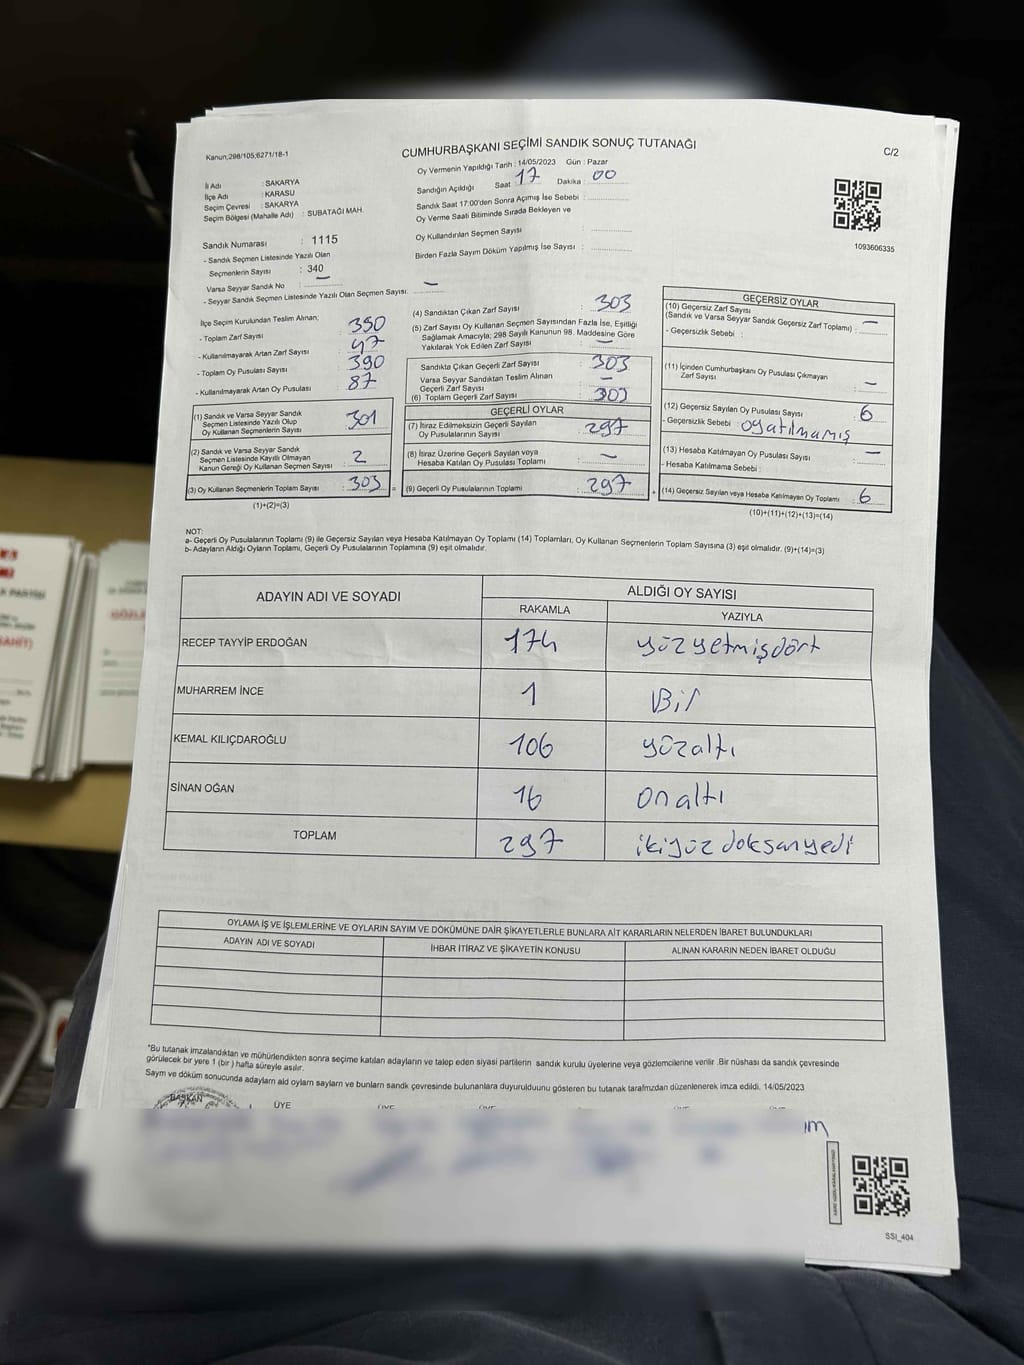 Kanun,298/105;6271/18-1
CUMHURBAŞKANI SEÇİMİ SANDIK SONUÇ TUTANAĞI
C/2
Oy Vermenin Yapıldığı Tarih : 14/05/2023 Gün : Pazar
Sandığın Açıldığı Saat : 17 Dakika : 00
Sandık Saat 17:00'den Sonra Açımış İse Sebebi :
Oy Verme Saati Bitiminde Sırada Bekleyen ve
Oy Kullandırılan Seçmen Sayısı :
Birden Fazla Sayım Döküm Yapılmış İse Sayısı :
İl Adı : SAKARYA
İlçe Adı : KARASU
Seçim Çevresi : SAKARYA
Seçim Bölgesi (Mahalle Adı) : SUBATAĞI MAH.
1093606335
Sandık Numarası : 1115
- Sandık Seçmen Listesinde Yazılı Olan
Seçmenlerin Sayısı : 340
Varsa Seyyar Sandık No : —
- Seyyar Sandık Seçmen Listesinde Yazılı Olan Seçmen Sayısı: —
İlçe Seçim Kurulundan Teslim Alınan;
- Toplam Zarf Sayısı : 350
- Kullanılmayarak Artan Zarf Sayısı : 47
- Toplam Oy Pusulası Sayısı : 390
- Kullanılmayarak Artan Oy Pusulası : 87
(1) Sandık ve Varsa Seyyar Sandık
Seçmen Listesinde Yazılı Olup
Oy Kullanan Seçmenlerin Sayısı : 301
(2) Sandık ve Varsa Seyyar Sandık
Seçmen Listesinde Kayıtlı Olmayan
Kanun Gereği Oy Kullanan Seçmen Sayısı : 2
(3) Oy Kullanan Seçmenlerin Toplam Sayısı : 303 =
(1)+(2)=(3)
(4) Sandıktan Çıkan Zarf Sayısı : 303
(5) Zarf Sayısı Oy Kullanan Seçmen Sayısından Fazla İse, Eşitliği
Sağlamak Amacıyla; 298 Sayılı Kanunun 98. Maddesine Göre
Yakılarak Yok Edilen Zarf Sayısı : —
Sandıkta Çıkan Geçerli Zarf Sayısı : 303
Varsa Seyyar Sandıktan Teslim Alınan
Geçerli Zarf Sayısı : —
(6) Toplam Geçerli Zarf Sayısı : 303
GEÇERLİ OYLAR
(7) İtiraz Edilmeksizin Geçerli Sayılan
Oy Pusulalarının Sayısı : 297
(8) İtiraz Üzerine Geçerli Sayılan veya
Hesaba Katılan Oy Pusulası Toplamı : —
(9) Geçerli Oy Pusulalarının Toplamı : 297 +
GEÇERSİZ OYLAR
(10) Geçersiz Zarf Sayısı
(Sandık ve Varsa Seyyar Sandık Geçersiz Zarf Toplamı) : —
- Geçersizlik Sebebi :
(11) İçinden Cumhurbaşkanı Oy Pusulası Çıkmayan
Zarf Sayısı : —
(12) Geçersiz Sayılan Oy Pusulası Sayısı : 6
- Geçersizlik Sebebi : oy atılmamış
(13) Hesaba Katılmayan Oy Pusulası Sayısı : —
- Hesaba Katılmama Sebebi :
(14) Geçersiz Sayılan veya Hesaba Katılmayan Oy Toplamı : 6
(10)+(11)+(12)+(13)=(14)
NOT:
a- Geçerli Oy Pusulalarının Toplamı (9) ile Geçersiz Sayılan veya Hesaba Katılmayan Oy Toplamı (14) Toplamları, Oy Kullanan Seçmenlerin Toplam Sayısına (3) eşit olmalıdır. (9)+(14)=(3)
b- Adayların Aldığı Oyların Toplamı, Geçerli Oy Pusulalarının Toplamına (9) eşit olmalıdır.
ADAYIN ADI VE SOYADI ALDIĞI OY SAYISI
RAKAMLA YAZIYLA
RECEP TAYYİP ERDOĞAN 174 yüzyetmişdört
MUHARREM İNCE 1 Bir
KEMAL KILIÇDAROĞLU 106 yüzaltı
SİNAN OĞAN 16 onaltı
TOPLAM 297 ikiyüz doksanyedi
OYLAMA İŞ VE İŞLEMLERİNE VE OYLARIN SAYIM VE DÖKÜMÜNE DAİR ŞİKAYETLERLE BUNLARA AİT KARARLARIN NELERDEN İBARET BULUNDUKLARI
ADAYIN ADI VE SOYADI İHBAR İTİRAZ VE ŞİKAYETİN KONUSU ALINAN KARARIN NEDEN İBARET OLDUĞU
*Bu tutanak imzalandıktan ve mühürlendikten sonra seçime katılan adayların ve talep eden siyasi partilerin sandık kurulu üyelerine veya gözlemcilerine verilir .Bir nüshası da sandık çevresinde
görülecek bir yere 1 (bir ) hafta süreyle asılır.
Sayım ve döküm sonucunda adayların ald oyların sayların ve bunların sandık çevresinde bulunanlara duyurulduunu gösteren bu tutanak tarafmızdan düzenlenerek imza edildi. 14/05/2023
BAŞKAN ÜYE
SSI_404